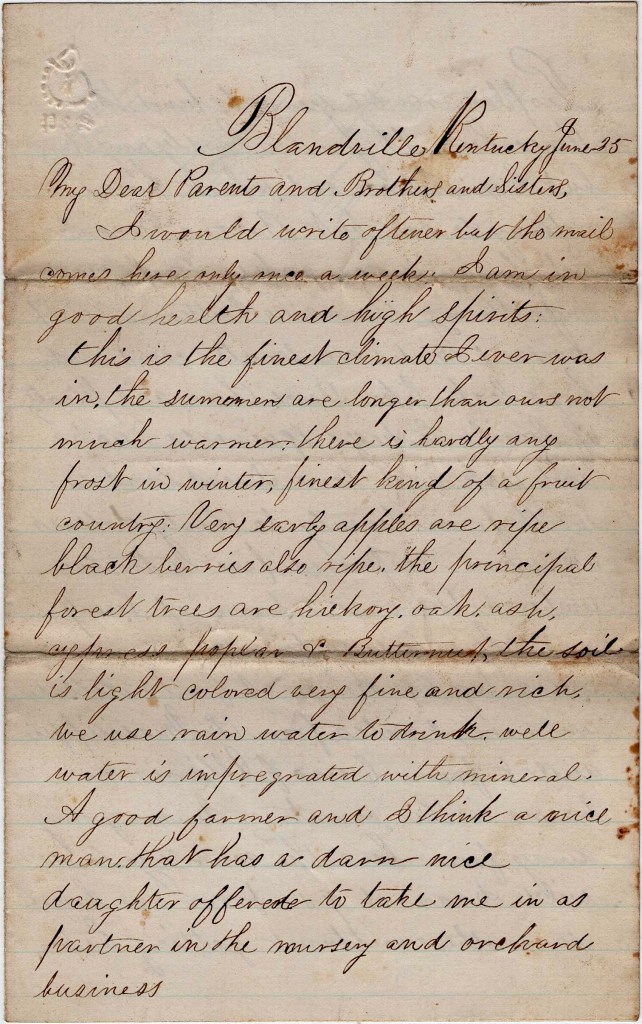 Blandville Kentucky June 25
My Dear Parents and Brothers and Sisters,
I would write oftener but the mail
comes here only once a week. I am in
good health and high spirits:
this is the finest climate I ever was
in, the summers are longer than ours not
much warmer. there is hardly any
frost in winter, finest kind of a fruit
country: Very early apples are ripe
black berries also ripe. the principal
forest trees are hickory. oak. ash.
cypress poplar & Butternut, the soil
is light colored very fine and rich,
we use rain water to drink. well
water is impregnated with mineral.
A good farmer and I think a nice
man. that has a darn nice
daughter offered to take me in as
partner in the nursery and orchard
business